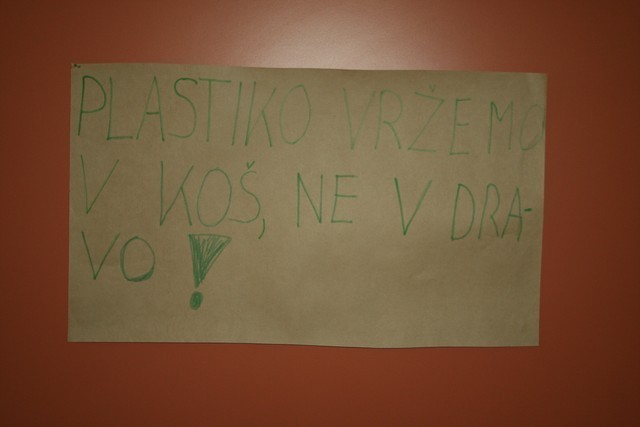 PLASTIKO VRŽEMO
V KOŠ, NE V DRA-
VO!